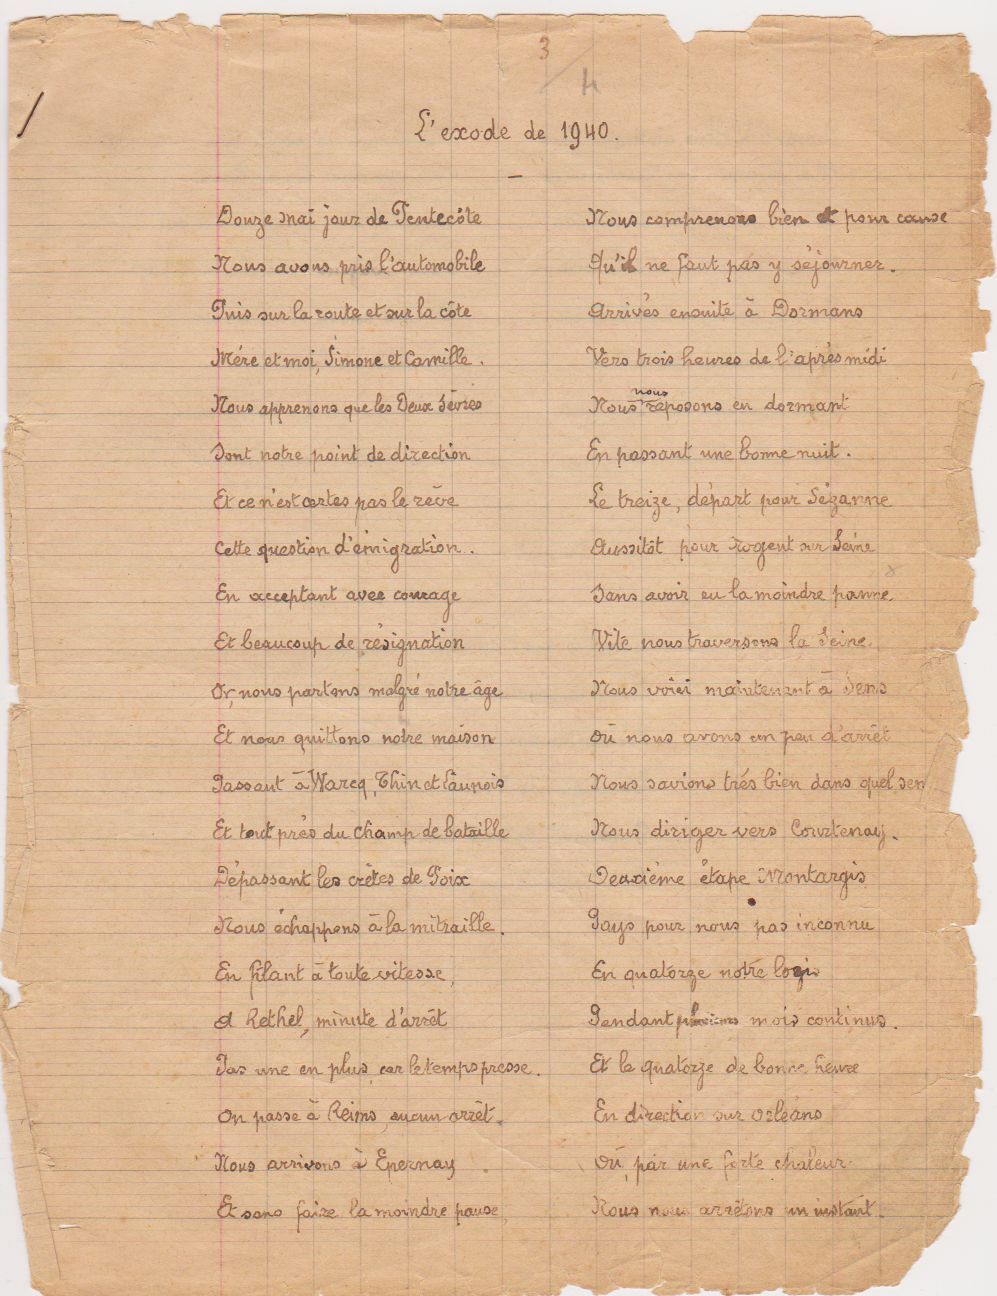 3
4
L'exode de 1940.
Douze mai jour de Pentecôte
Nous avons pris l'automobile
Puis sur la route et sur la côte
Mére et moi, Simone et Camille.
Nous apprenons que les Deux Sèvres
Sont notre point de direction
Et ce n'est certes pas le rêve
Cette question d'émigration.
En acceptant avec courage
Et beaucoup de résignation
Or, nous partons malgré notre âge
Et nous quittons notre maison
Passant à Warcq, Thin et Launois
Et tout près du champ de bataille
Dépassant les crêtes de Foix
Nous échappons à la mitraille.
En filant à toute vitesse,
A Rethel, minute d'arrêt
Pas une en plus, car le temps presse.
On passe à Reims, aucun arrêt.
Nous arrivons à Epernay
Et sans faire la moindre pause,
Nous comprenons bien et pour cause
Qu'il ne faut pas y séjourner.
Arrivés ensuite à Dormans
Vers trois heures de l'après midi
Nous nous reposons en dormant
En passant une bonne nuit.
Le treize, départ pour Sézanne
Aussitôt pour Nogent sur Seine
Sans avoir eu la moindre panne.
Vite nous traversons la Seine.
Nous voici maintenant à Sens
Où nous avons un peu d'arrêt
Nous savions très bien dans quel sen
Nous diriger vers Courtenay.
Deuxième étape Montargis
Pays pour nous pas inconnu
En quatorze notre logis
Pendant plusieurs mois continus.
Et le quatorze de bonne heure
En direction sur Orléans
Où, par une forte chaleur
Nous nous arrêtons un instant.